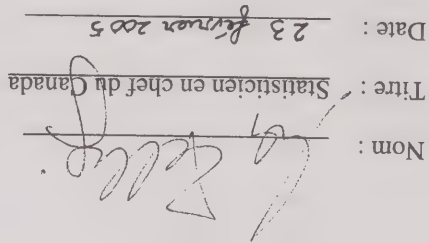 Nom :
Titre : Statisticien en chef du Canada
Date : 23 février 2005